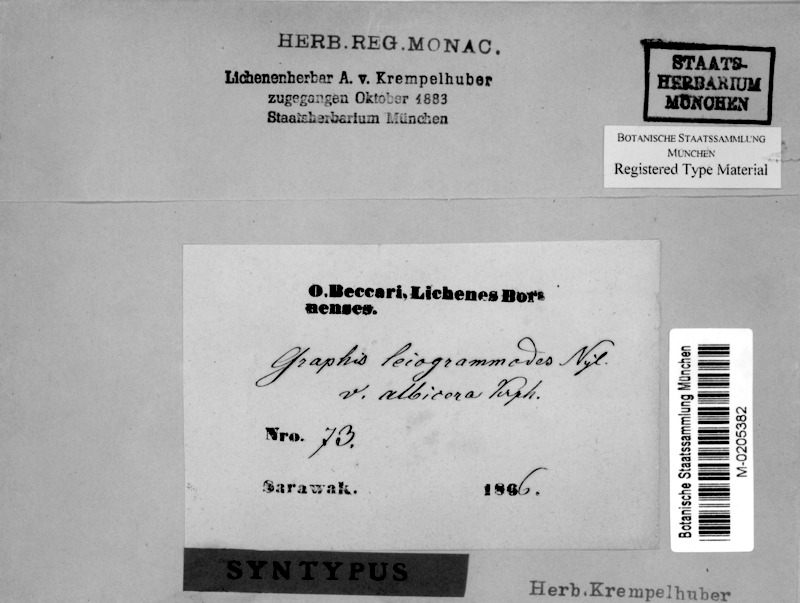 HERB.REG.MONAC.
Lichenenherbar A. v. Krempelhuber
zugegangen Oktober 1883
Staatsherbarium München
STAATS-
HERBARIUM
MÜNCHEN
BOTANISCHE STAATSSAMMLUNG
MÜNCHEN
Registered Type Material
O. Beccari, Lichenes Bor-
nenses.
Graphis leiogrammodes Nyl.
v. albicera Krph.
Nro. 73.
Sarawak. 1866.
Botanische Staatssammlung München
M-0205382
SYNTYPUS
Herb. Krempelhuber